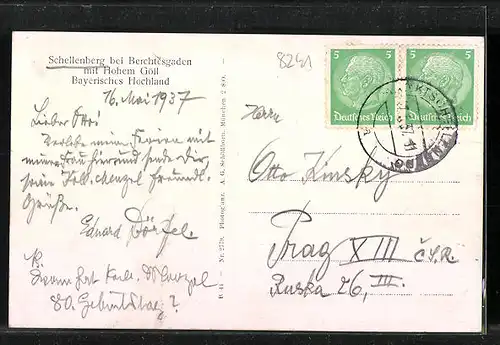 Schellenberg bei Berchtesgaden
mit Hohem Göll
Bayerisches Hochland
16. Mai 1937
Lieber Otto!
Verlebe meine Ferien mit
meiner Frau hier und sende Dir,
sowie Koll. Menzel freundl.
Grüße.
Eduard Dörfel.
Wann hat Koll. Menzel
80. Geburtstag?
B 44 — Nr. 2778. Photoglanz. A. G. Schöllhorn, München 2 SO.
8241
5
5
Deutsches Reich
Deutsches Reich
Herrn
Otto Kinsky
Prag XIII Č.S.R.
Ruska 26, III.